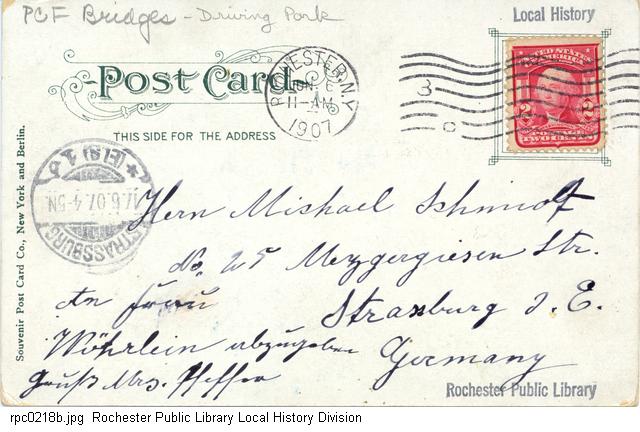 PCF Bridges - Driving Park
Local History
Post Card
THIS SIDE FOR THE ADDRESS
ROCHESTER, N.Y.
11-AM
1907
3
UNITED STATES OF AMERICA
2 2
POSTAGE
TWO CENTS
STRASSBURG
* (ELS) 1
17.6.07.4-5N
Souvenir Post Card Co., New York and Berlin.
Herrn Michael Schmidt
No. 25 Mezgergiesen Str.
An Frau Strassburg i. E.
Wöhrlein abzugeben Germany
Gruß Mrs. Pfeffer
Rochester Public Library
rpc0218b.jpg Rochester Public Library Local History Division